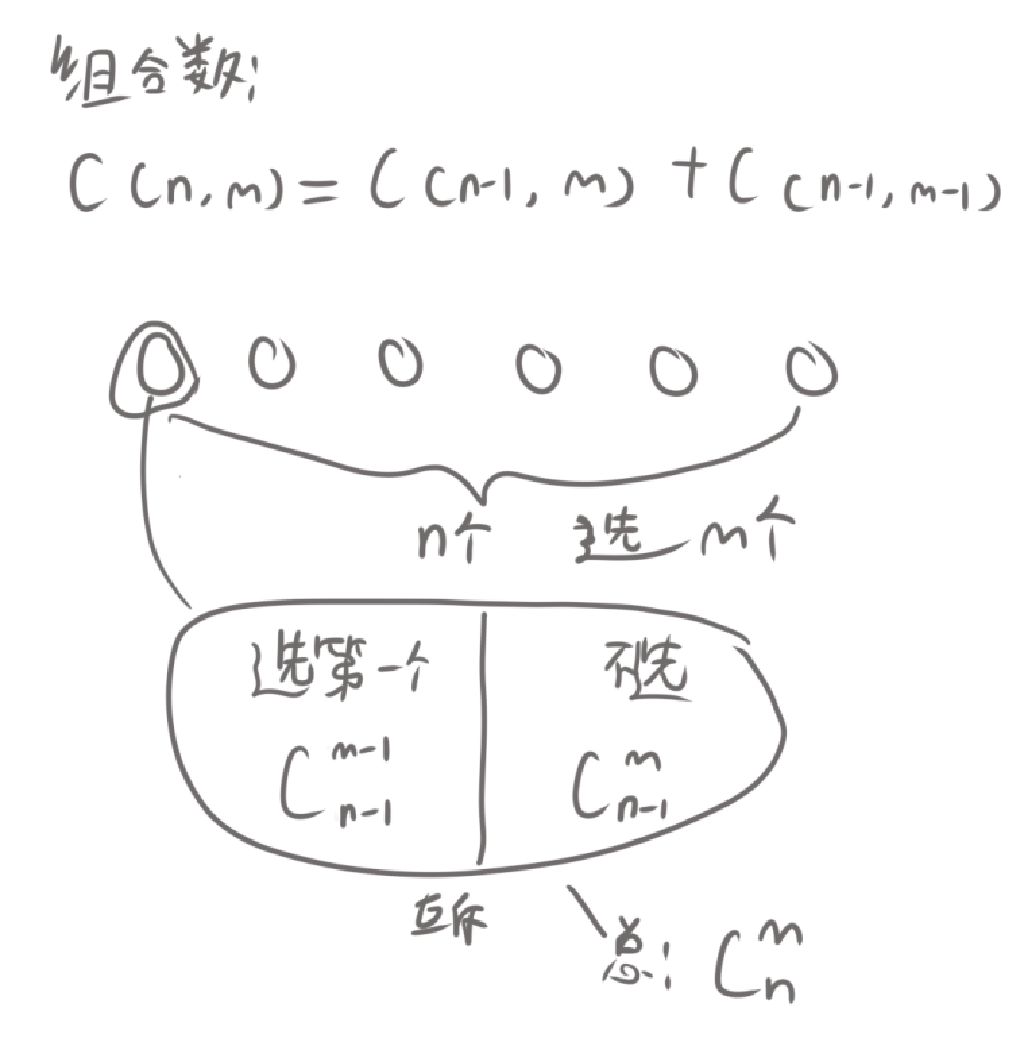 组合数:
C(n,m)=C(n-1,m)+C(n-1,m-1)
n个 选m个
选第一个 不选
C_{n-1}^{m-1} C_{n-1}^{m}
互斥
总: C_{n}^{m}